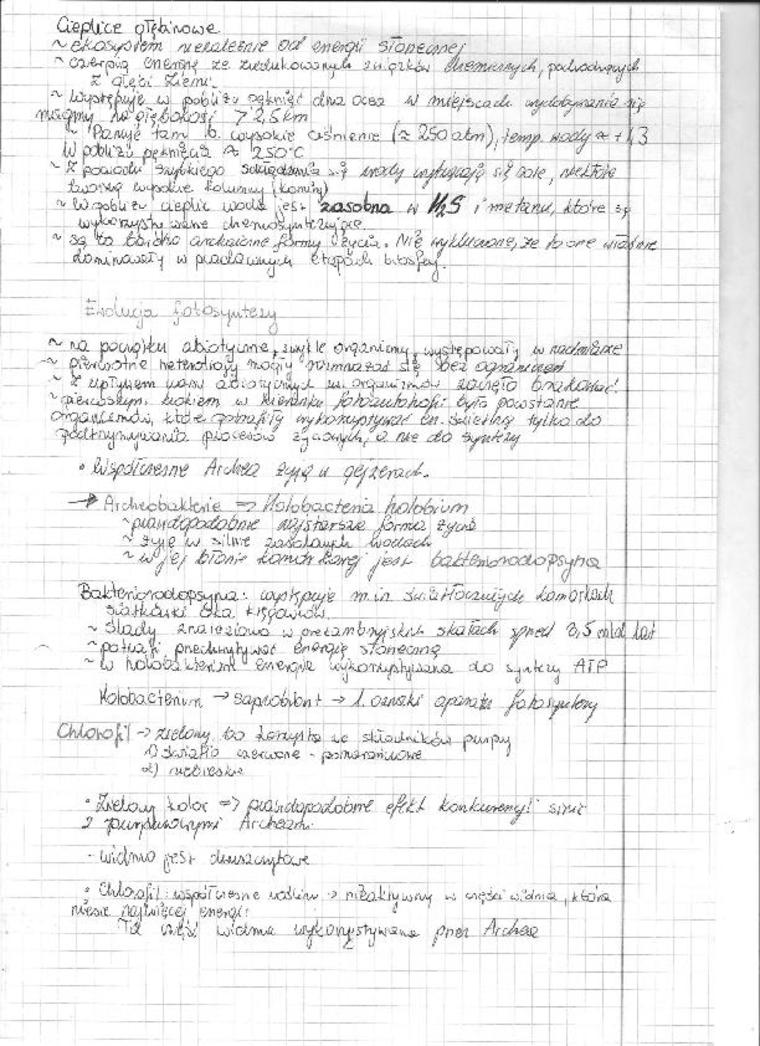 Cieplice głębinowe
~ ekosystem niezależnie od energii słonecznej
~ czerpią energię ze zredukowanych związków chemicznych, pochodzących
z głębi Ziemi.
~ Występuje w pobliżu pęknięć dna ocea w miejscach wydobywania się
magmy na głębokości > 2,5 km
~ Panuje tam b. wysokie ciśnienie (≈ 250 atm), temp. wody ≈ +1,3
W pobliżu pęknięcia ≈ 250°C
~ Z powodu szybkiego się wody wytrącają się sole, niektóre
tworzą wysokie kolumny (kominy)
~ W pobliżu cieplic woda jest zasobna w H2S i metanu, które są
wykorzystywane chemosyntezujące
~ są to bardzo archaiczne formy życia. Nie wykluczone, że to one właśnie
dominowały w pradawnych etapach biosfery.
Ewolucja fotosyntezy
~ na początku abiotyczne, zwykle organiczny, występowały w nadmiarze
~ pierwotne heterotrofy mogły rozmnażać się bez ograniczeń
~ Z upływem czasu abiotycznych zw. organizmów zaczęło brakować.
~ pierwszym krokiem w kierunku fotoautotrofii było powstanie
organizmów, które potrafiły wykorzystywać en. świetlną tylko do
podtrzymywania procesów życiowych, a nie do syntezy
• Współczesne Archea żyją w gejzerach.
→ Archeobakterie => Halobacteria halobium
~ prawdopodobnie najstarsza forma życia
~ żyje w silnie zasolonych wodach
~ w jej błonie komórkowej jest bakteriorodopsyna
Bakteriorodopsyna: występuje m.in. światłoczułych komórkach
siatkówki oka kręgowców.
~ Ślady znaleziono w prekambryjskich skałach sprzed 3,5 mld lat
~ potrafi przechwytywać energię słoneczną
~ w halobakterium energia wykorzystywana do syntezy ATP
Halobacterium → saprobiont → 1. aparat fotosyntezy
Chlorofil → zielony, bo korzysta ze składników purpury
1) światło czerwone - pomarańczowe
2) niebieskie
• Zielony kolor => prawdopodobnie efekt konkurencji sinic
z purpurowymi Archeami
- widmo jest dwuszczytowe
• Chlorofil: współczesne roślin → nieaktywny w części widma, która
niesie najwięcej energii
Ta część widma wykorzystywana przez Archea